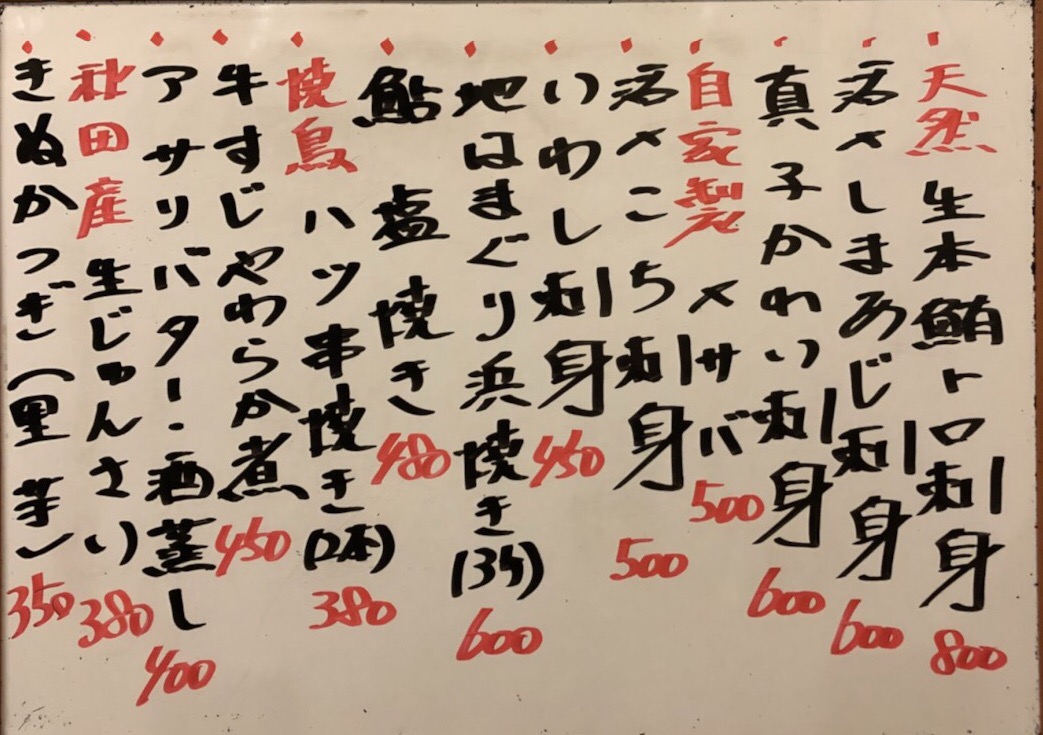 天然 生本鮪トロ刺身 800
活〆しまあじ刺身 600
真子かれい刺身 600
自家製 〆サバ 500
活〆こち刺身 500
いわし刺身 450
地はまぐり浜焼き(3ケ) 600
鮎 塩焼き 480
焼鳥 ハツ串焼き(2本) 380
牛すじやわらか煮 450
アサリバター・酒蒸し 400
秋田産 生じゅんさい 380
きぬかつぎ(里芋) 350